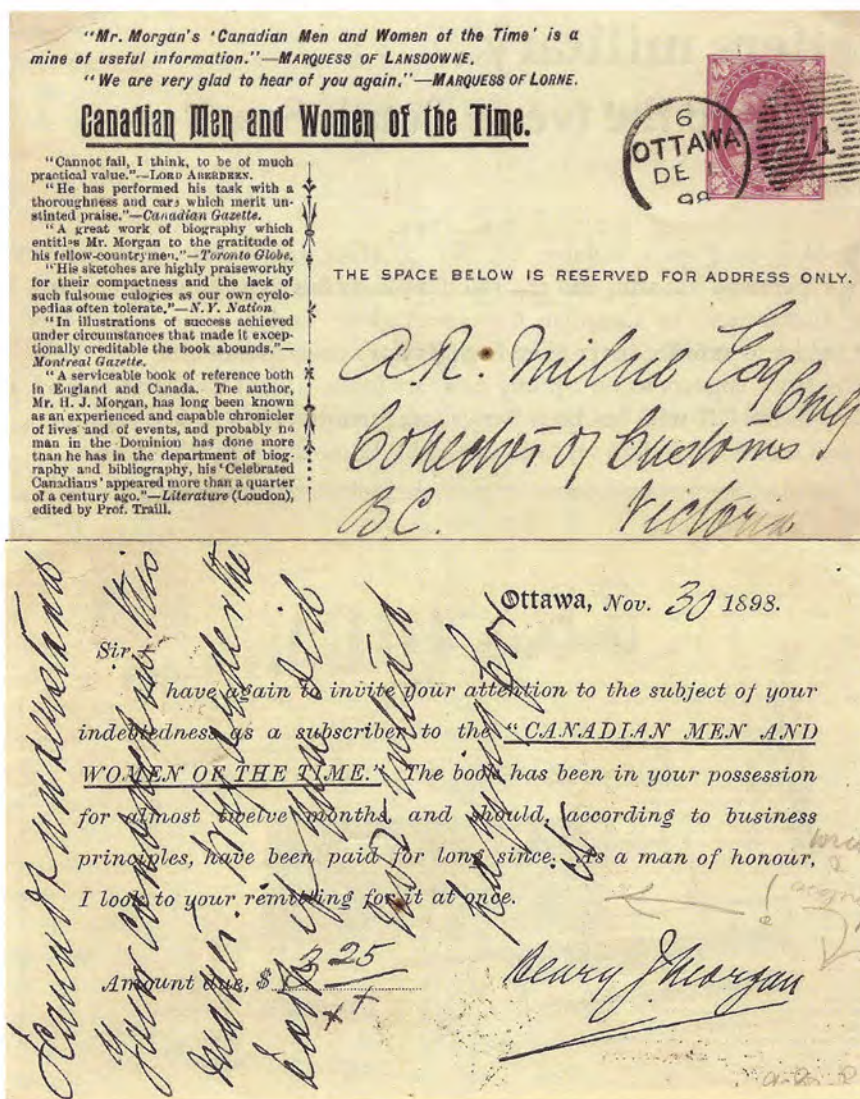 "Mr. Morgan's 'Canadian Men and Women of the Time' is a
mine of useful information."—MARQUESS OF LANSDOWNE.
"We are very glad to hear of you again."—MARQUESS OF LORNE.
Canadian Men and Women of the Time.
"Cannot fail, I think, to be of much
practical value."—LORD ABERDEEN.
"He has performed his task with a
thoroughness and care which merit un-
stinted praise."—Canadian Gazette.
"A great work of biography which
entitles Mr. Morgan to the gratitude of
his fellow-countrymen."—Toronto Globe.
"His sketches are highly praiseworthy
for their compactness and the lack of
such fulsome eulogies as our own cyclo-
pedias often tolerate."—N. Y. Nation
"In illustrations of success achieved
under circumstances that made it excep-
tionally creditable the book abounds."—
Montreal Gazette.
"A serviceable book of reference both
in England and Canada. The author,
Mr. H. J. Morgan, has long been known
as an experienced and capable chronicler
of lives and of events, and probably no
man in the Dominion has done more
than he has in the department of biog-
raphy and bibliography, his 'Celebrated
Canadians' appeared more than a quarter
of a century ago."—Literature (London),
edited by Prof. Traill.
6
OTTAWA
DE
98
1
THE SPACE BELOW IS RESERVED FOR ADDRESS ONLY.
A.R. Milne Esq CMG
Collector of Customs
B.C. Victoria
Ottawa, Nov. 30 1898.
Sir,
have again to invite your attention to the subject of your
indebtedness as a subscriber to the "CANADIAN MEN AND
WOMEN OF THE TIME." The book has been in your possession
for almost twelve months, and should, according to business
principles, have been paid for long since. As a man of honour,
I look to your remitting for it at once.
Amount due, $ 3 25
Henry J. Morgan
I cannot understand
your conduct in this
matter. Why order the
book if you did
not intend
paying for
it